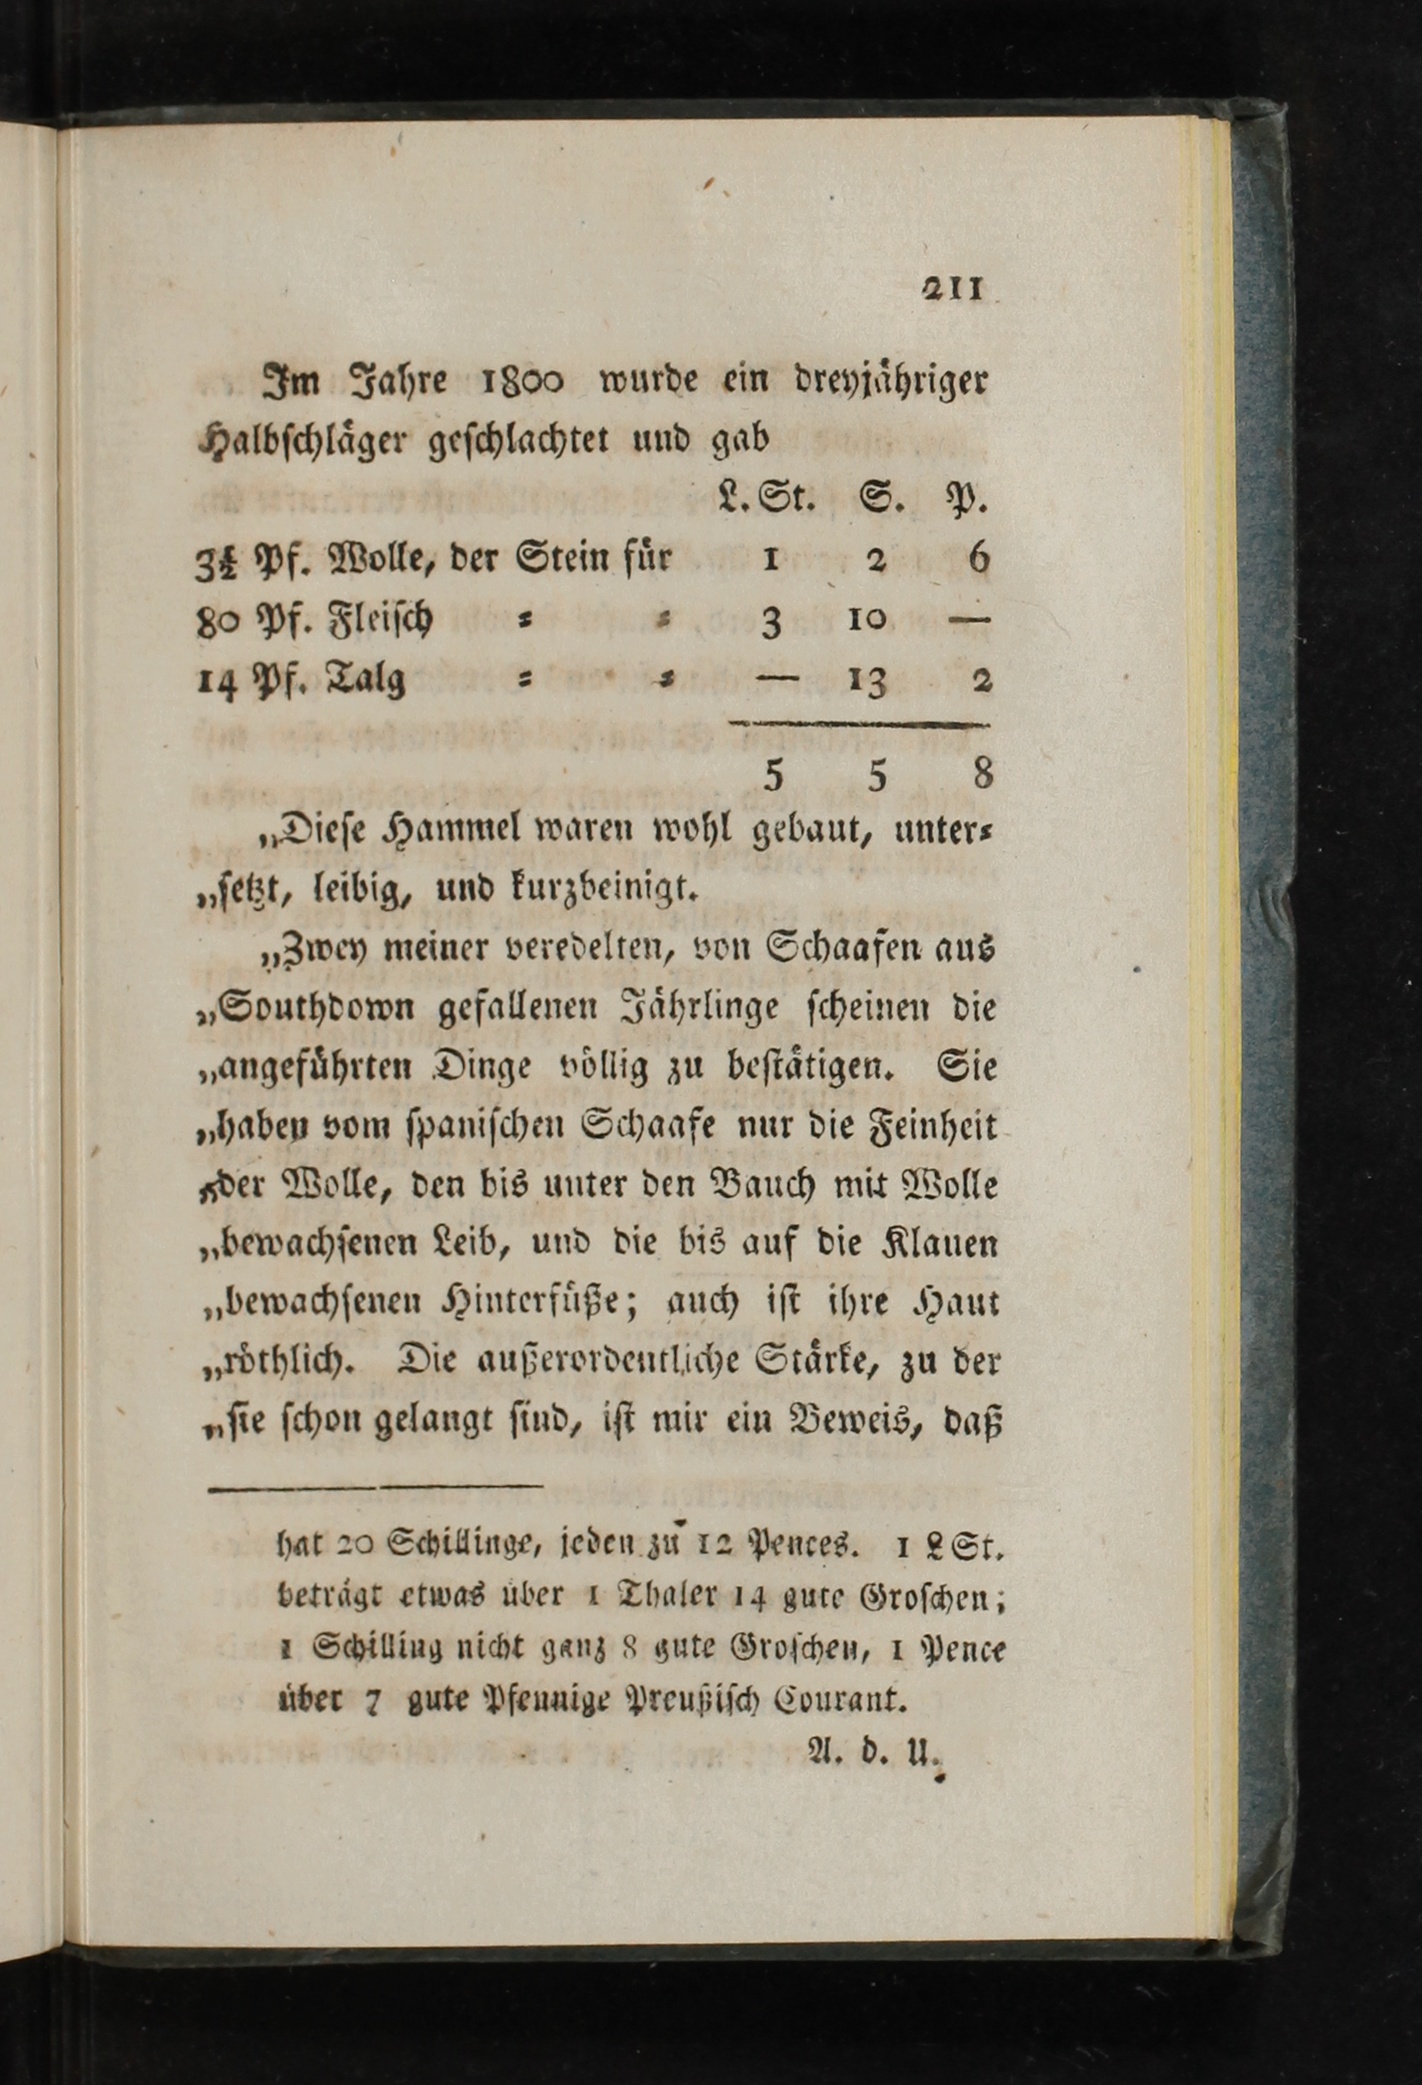 211
Im Jahre 1800 wurde ein dreyjähriger
Halbschläger geschlachtet und gab
L. St. S. P.
3½ Pf. Wolle, der Stein für 1 2 6
80 Pf. Fleisch = = 3 10 —
14 Pf. Talg = = — 13 2
5 5 8
„Diese Hammel waren wohl gebaut, unter=
„setzt, leibig, und kurzbeinigt.
„Zwey meiner veredelten, von Schaafen aus
„Southdown gefallenen Jährlinge scheinen die
„angeführten Dinge völlig zu bestätigen. Sie
„haben vom spanischen Schaafe nur die Feinheit
„der Wolle, den bis unter den Bauch mit Wolle
„bewachsenen Leib, und die bis auf die Klauen
„bewachsenen Hinterfüße; auch ist ihre Haut
„röthlich. Die außerordentliche Stärke, zu der
„sie schon gelangt sind, ist mir ein Beweis, daß
hat 20 Schillinge, jeden zu 12 Pences. 1 LSt.
beträgt etwas über 1 Thaler 14 gute Groschen;
1 Schilling nicht ganz 8 gute Groschen, 1 Pence
über 7 gute Pfennige Preußisch Courant.
A. d. U.